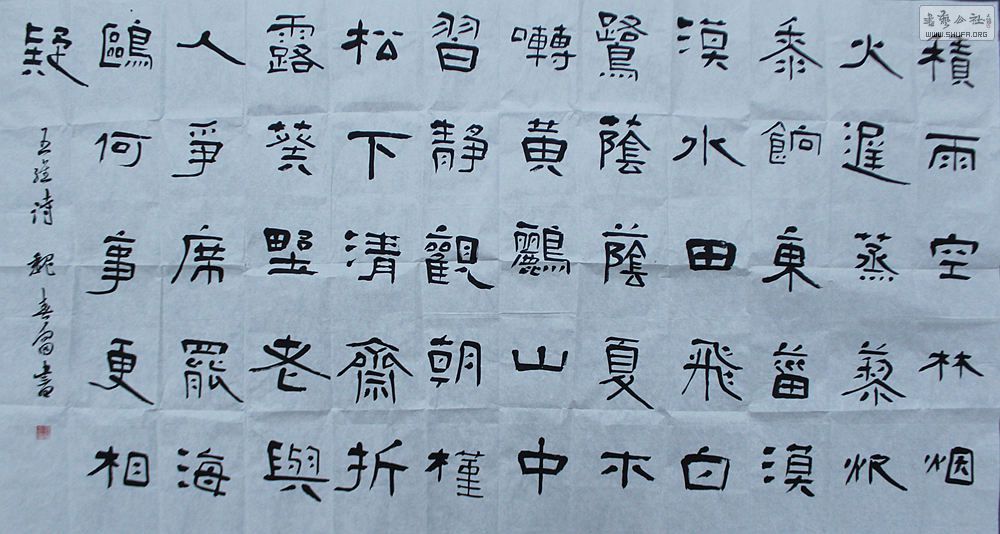 積雨空林烟
火遲蒸藜炊
黍餉東菑漠
漠水田飛白
鷺蔭蔭夏木
囀黃鸝山中
習靜觀朝槿
松下清齋折
露葵野老與
人爭席罷海
鷗何事更相
疑
王維詩 魏 書
書藝公社
WWW.SHUFA.ORG